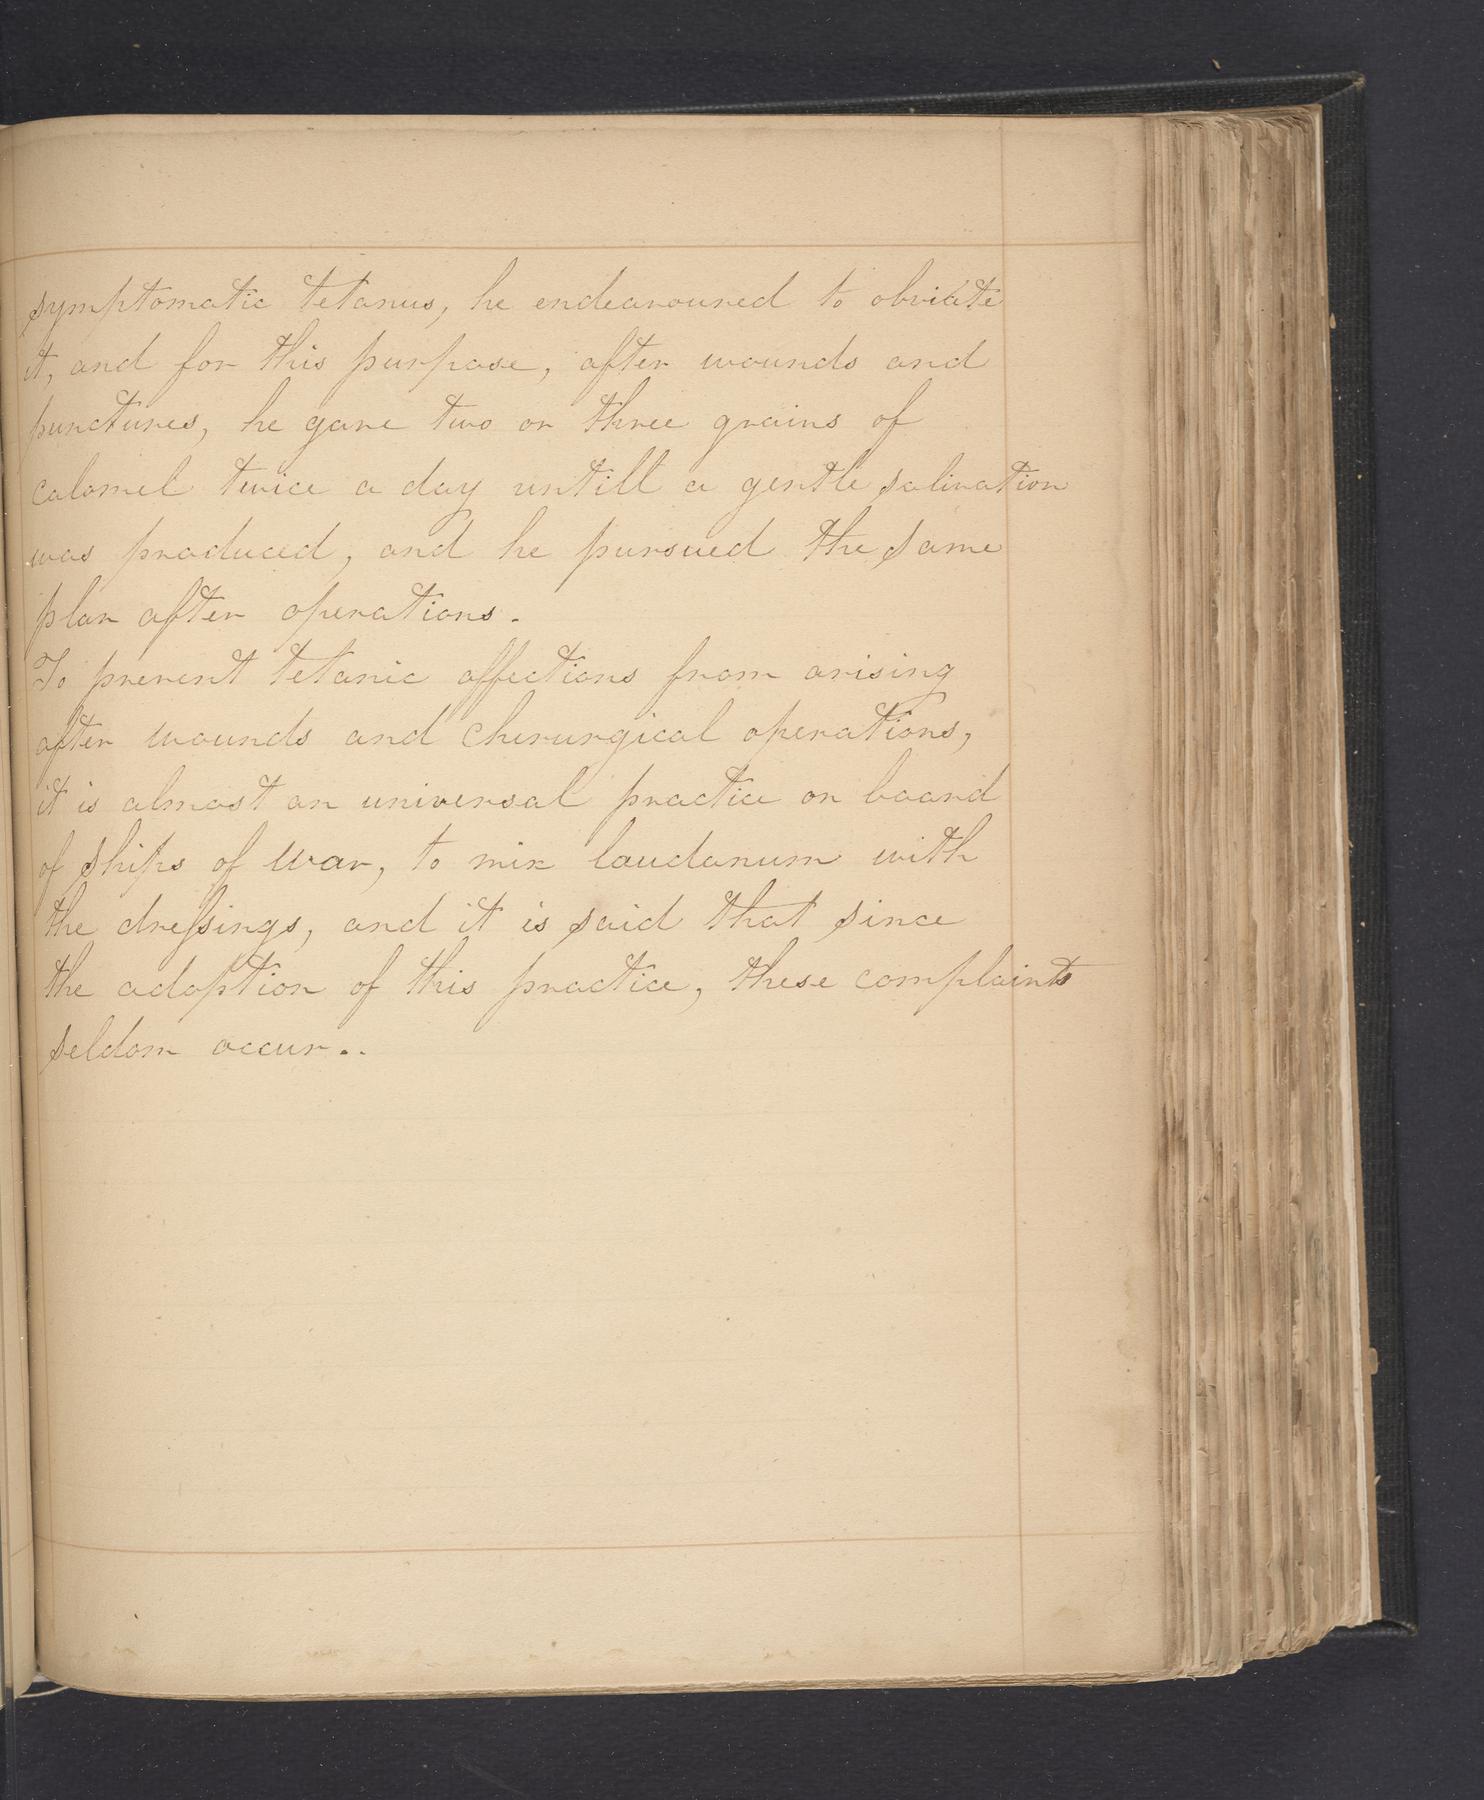 symptomatic tetanus, he endeavoured to obviate
it, and for this purpose, after wounds and
punctures, he gave two or three grains of
calomel twice a day untill a gentle salivation
was produced, and he pursued the same
plan after operations.
To prevent tetanic affections from arising
after wounds and cherurgical operations,
it is almost an universal practice on board
of ships of war, to mix laudanum with
the dressings, and it is said that since
the adoption of this practice, these complaints
seldom occur..